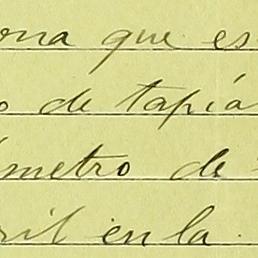 ona que es
o de tapia
metro de
ril en la